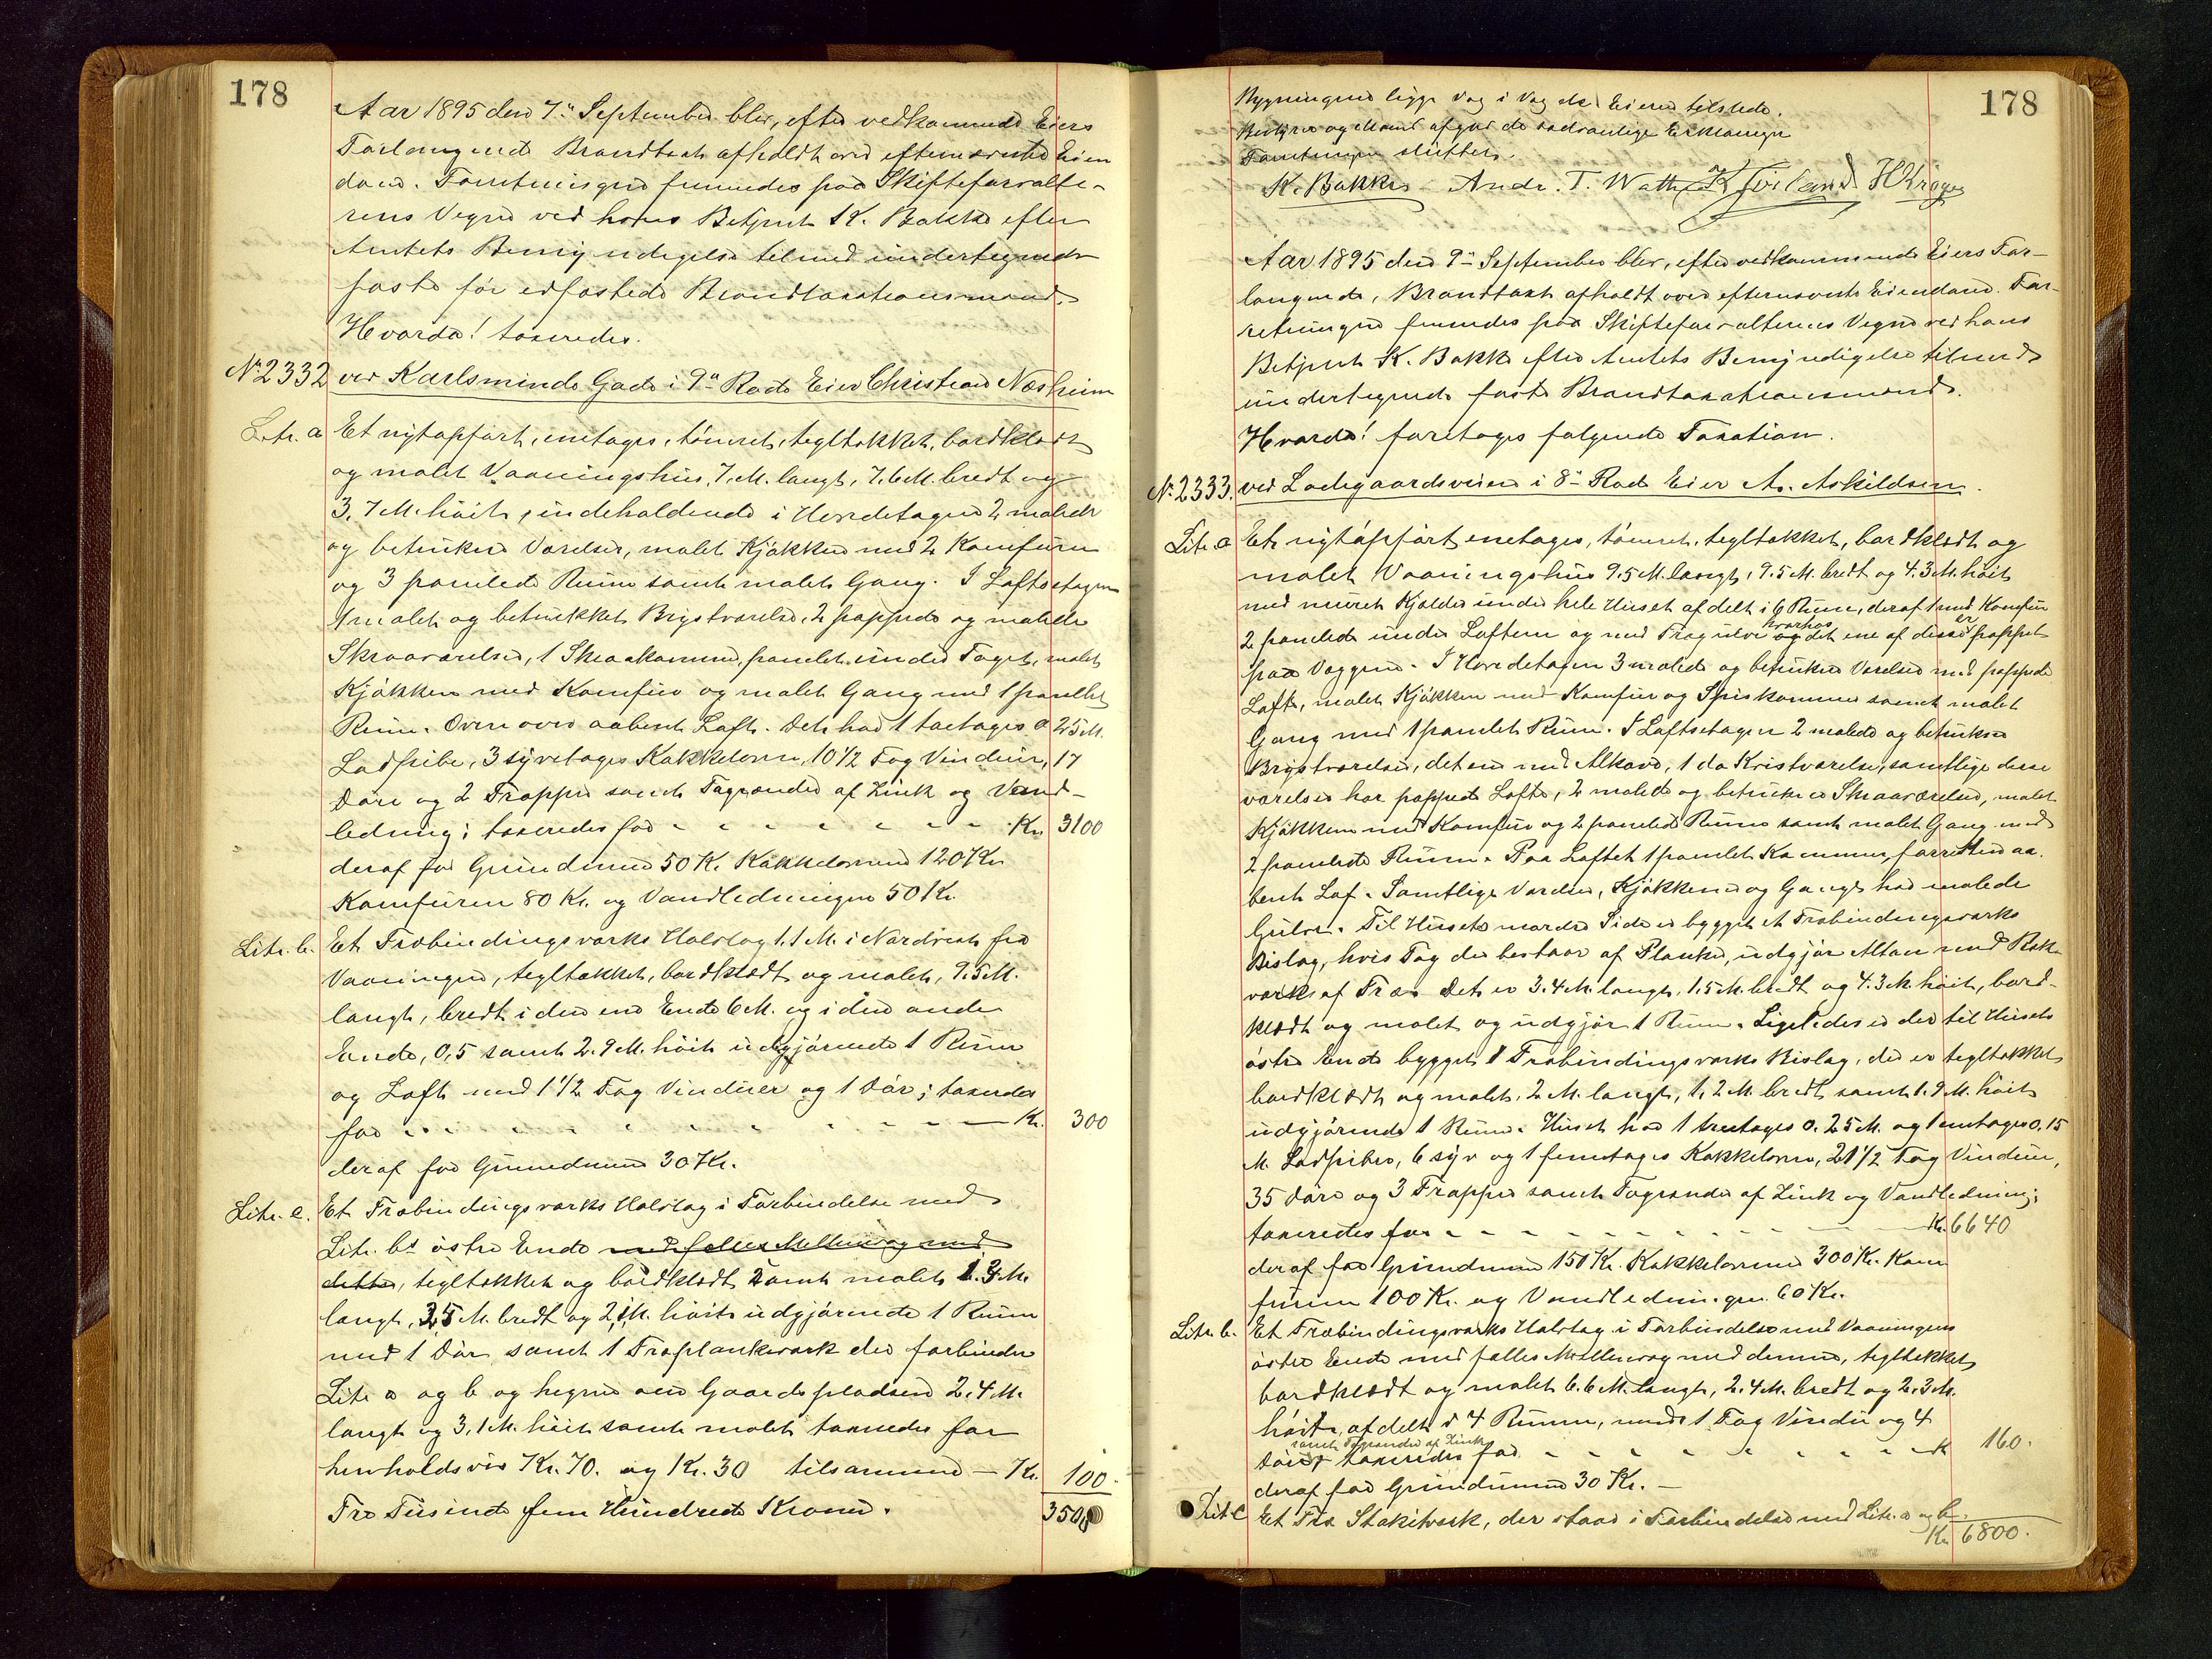 178
Aar 1895 den 7' September blev, efter vedkommende Eiers
Forlangende Brandtaxt afholdt over efternævnte Eien
dom. Forretningen fremmedes paa Skifteforvalte-
rens Vegne ved hans Betjent K. Bakke efter
Amtets Bemyndigelse tilmed undertegnede
faste før edfæstede Brandtaxationsmænd.
Hvorda! taxeredes.
No 2332 ved Karlsminde Gade i 9de Rode Eier Christian Næsheim
Litr. a Et nyt opført, enetages, tømret, tegltækket, bordklædt
og malet Vaaningshus, 7. M. langt, 7.6 M. bredt og
3.7 M. høit, indeholdende i Hovedetagen 2 malede
og betrukne Værelser, malet Kjøkken med 2 Komfurer
og 3 panelede Rum samt malet Gang. I Loftsetagen
1 malet og betrukket Brystværelse, 2 pappede og malede
Skraaværelser, 1 Skraakammer, panelet under Taget, malet
Kjøkken med Komfur og malet Gang med 1 panelet
Rum. Ovenover aabent Loft. Det har 1 toetages 0.25 M.
Ladpibe, 3 syvetages Kakkelovne, 10 1/2 Fag Vinduer, 17
Døre og 2 Trapper samt Tagrender af Zink og Vand-
ledning; taxeredes for - - - - - - - Kr. 3100
deraf for Grundmuren 50 K. Kakkelovnene 120 Kr.
Komfuren 80 Kr. og Vandledningen 50 Kr.
Litr. b. Et Træbindingsværks Halvtag 1.1 M. i Nordvest fra
Vaaningen, tegltækket, bordklædt og malet, 9.5 M.
langt, bredt i den ene Ende 6 M. og i den anden
Ende, 0,5 samt 2.9 M. høit udgjørende 1 Rum
og Loft med 1 1/2 Fag Vinduer og 1 Dør; taxeredes
for - - - - - - - - Kr. 300
deraf for Grundmuren 30 Kr.
Litr. c. Et Træbindingsværks Halvtag i Forbindelse med
Litr. bs østre Ende med fælles Mellemvæg med
dette, tegltækket og bordklædt samt malet 1.3 M.
langt, 3,5 M. bredt og 2,1 M. høit udgjørende 1 Rum
med 1 Dør, samt 1 Træplankeværk der forbinder
Litr a og b og hegner om Gaardspladsen 2.4 M.
langt og 3,1 M. høit samt malet taxeredes for
henholdsvis Kr. 70. og Kr. 30 tilsammen - Kr. 100.
Tre Tusinde fem Hundrede Kroner. 3500
178
Bygningen ligge Væg i Væg der Eieren tilstede.
Bestyrer og Mænd afgav de sædvanlige Erklæringer
Forretningen sluttet.
K. Bakke Andr. T. Wathe K Førland H Krüger
Aar 1895 den 9de September blev, efter vedkommende Eiers For-
langende, Brandtaxt afholdt over efternævnte Eiendom. For-
retningen fremmedes paa Skifteforvalterens Vegne ved hans
Betjent K. Bakke efter Amtets Bemyndigelse tilmed
undertegnede faste Brandtaxationsmænd.
Hvorda! foretages følgende Taxation.
No 2333. ved Ladegaardsveien i 8de Rode Eier A. Askildsen.
Litr. a Et nyt opført enetages, tømret, tegltækket, bordklædt og
malet Vaaningshus 9.5 M. langt, 9.5 M. bredt og 4.3 M. høit
med muret Kjelder under hele Huset afdelt i 6 Rum, deraf 1 med Komfur
2 panelede under Loftem og med Trægulve hvorhos og det ene af disse er pappet
paa Væggene. I Hovedetagen 3 malede og betrukne Værelser med pappede
Loft, malet Kjøkken med Komfur og Spiskammer samt malet
Gang med 1 panelet Rum. I Loftsetagen 2 malede og betrukne
Brystværelser, det ene med Alkove, 1 do Kvistværelse, samtlige disse
værelser har pappede Lofte, 2 malede og betrukne Skraaværelser, malet
Kjøkken med Komfur og 2 panelede Rum samt malet Gang med
2 panelede Rum. Paa Loftet 1 panelet Kammer, forresten aa-
bent Loft. Samtlige Værelser, Kjøkkener og Gange har malede
Gulve. Til Husets nordre Side er bygget et Træbindingsværks
Bislag, hvis Tag der bestaar af Planker, udgjør Altan med Ræk-
værk af Træ. Det er 3.4 M. langt, 1.5 M. bredt og 4.3 M. høit, bord-
klædt og malet og udgjør 1 Rum. Ligeledes er der til Husets
østre Ende bygget 1 Træbindingsværks Bislag, der er tegltækket
bordklædt og malet. 2 M. langt, 1.2 M. bredt samt 1.9 M. høit
udgjørende 1 Rum. Huset har 1 treetages 0.25 M. og 1 enetages 0.15
M. Ladpiber, 6 syv og 1 femetages Kakkelovne, 21 1/2 Fag Vinduer,
35 Døre og 3 Trapper samt Tagrender af Zink og Vandledning;
taxeredes for - - - - - - - - Kr. 6640
deraf for Grundmuren 150 Kr. Kakkelovnene 300 Kr. Kom-
furene 100 Kr. og Vandledningen 60 Kr.
Litr. b. Et Træbindingsværks Halvtag i Forbindelse med Vaaningens
østre Ende med fælles Mellemvæg med denne, tegltækket,
bordklædt og malet 6.6 M. langt, 2.4 M. bredt og 2.3 M.
høit, afdelt i 4 Rum, med 1 Fag Vindu og 4
samt Tagrender af Zink
Døre taxeredes for - - - - - - - K 160.
deraf for Grundmuren 30 Kr. -
Litr c Et Træ Stakitværk, der staar i Forbindelse med Litr. a og b.
Kr. 6800.